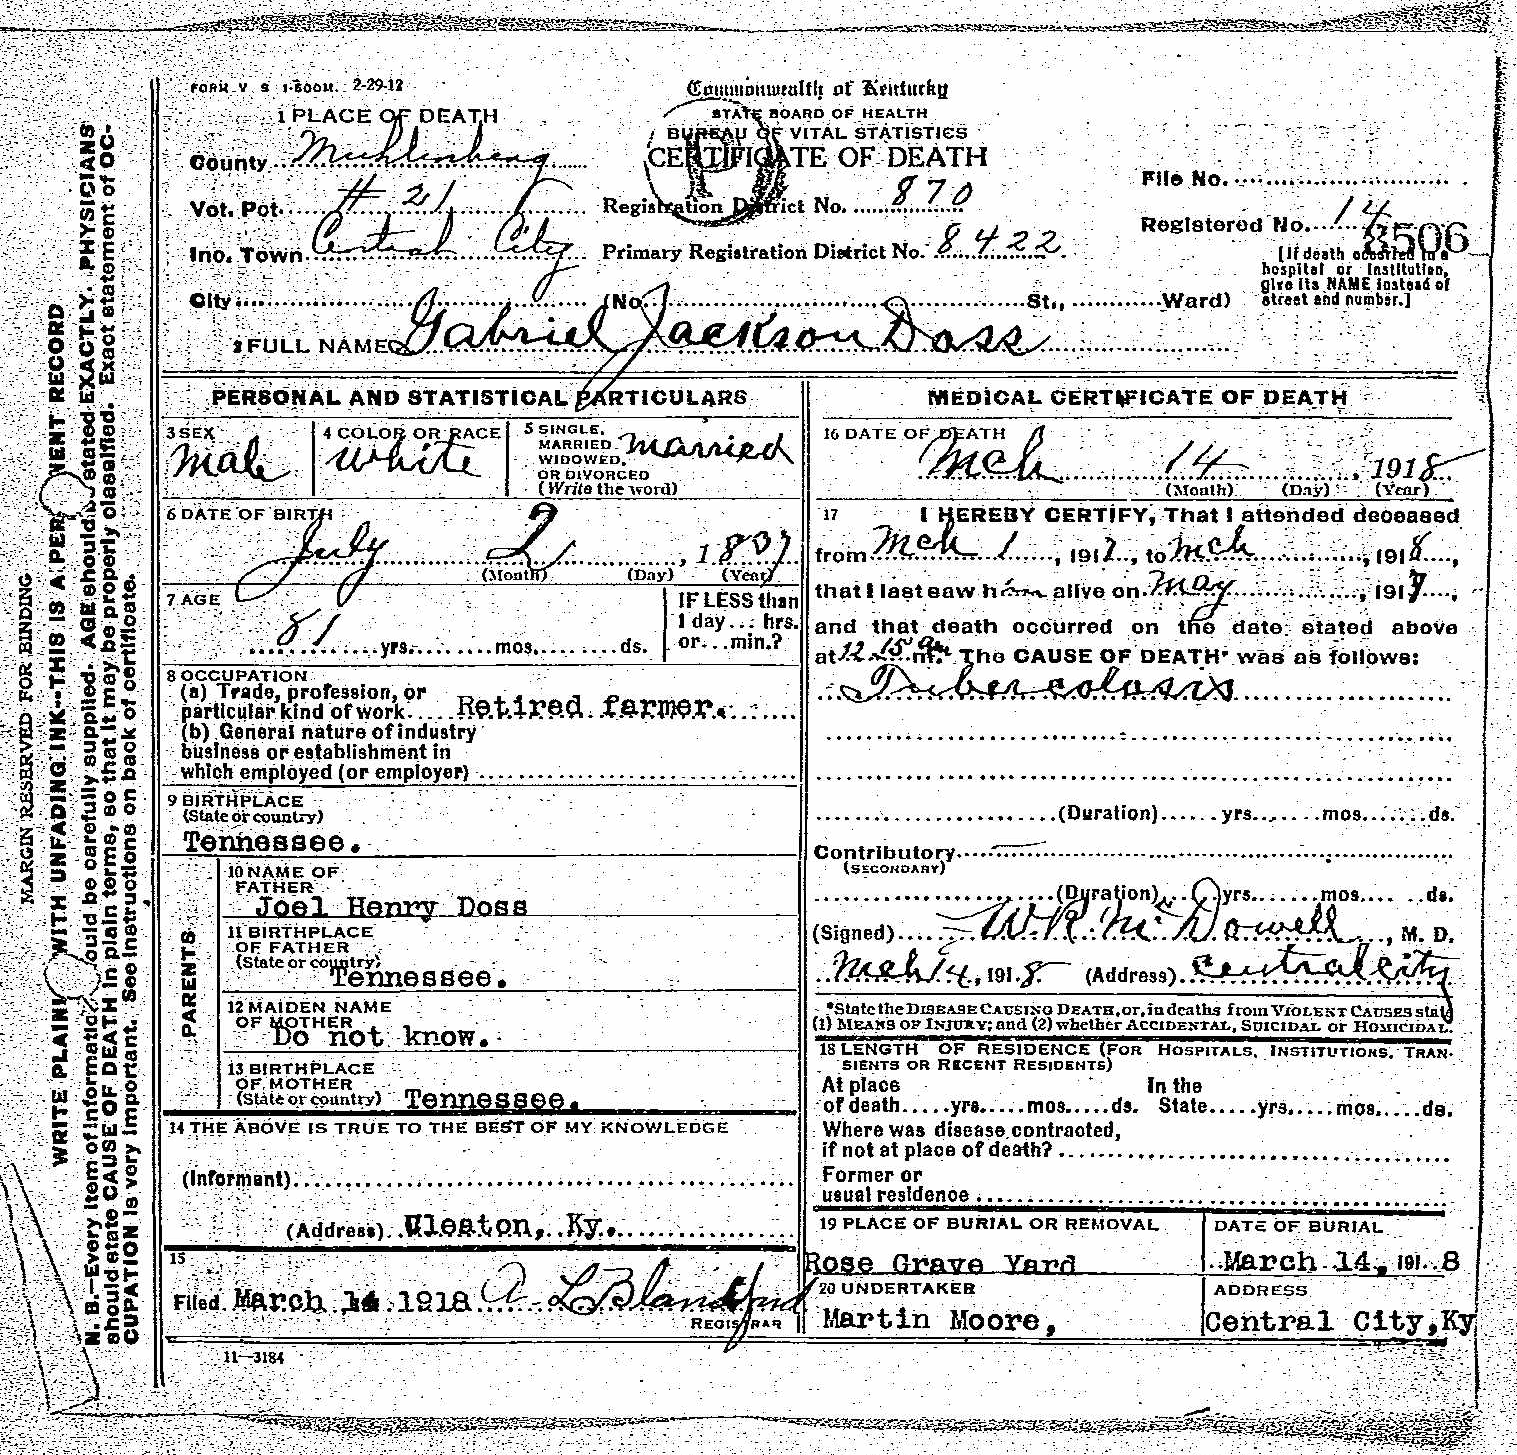 FORM V S 1-500M. 2-29-12
Commonwealth of Kentucky
STATE BOARD OF HEALTH
BUREAU OF VITAL STATISTICS
CERTIFICATE OF DEATH
P
1 PLACE OF DEATH
County Muhlenberg
Vot. Pct. # 21
Registration District No. 870
File No.
Inc. Town Central City
Primary Registration District No. 8422
Registered No. 14
8506
[If death occurred in a hospital or Institution, give its NAME instead of street and number.]
City (No. St., Ward)
2 FULL NAME Gabriel Jackson Doss
PERSONAL AND STATISTICAL PARTICULARS
3 SEX
Male
4 COLOR OR RACE
White
5 SINGLE,
MARRIED,
WIDOWED,
OR DIVORCED
(Write the word)
Married
6 DATE OF BIRTH
July 2, 1837
(Month) (Day) (Year)
7 AGE
81 yrs. mos. ds.
IF LESS than
1 day... hrs.
or... min.?
8 OCCUPATION
(a) Trade, profession, or
particular kind of work Retired farmer.
(b) General nature of industry
business or establishment in
which employed (or employer)
9 BIRTHPLACE
(State or country)
Tennessee.
PARENTS
10 NAME OF
FATHER
Joel Henry Doss
11 BIRTHPLACE
OF FATHER
(State or country)
Tennessee.
12 MAIDEN NAME
OF MOTHER
Do not know.
13 BIRTHPLACE
OF MOTHER
(State or country) Tennessee.
14 THE ABOVE IS TRUE TO THE BEST OF MY KNOWLEDGE
(Informant)
(Address) Cleaton, Ky.
15
Filed March 14 1918 A L Blandford
REGISTRAR
11—3184
MEDICAL CERTIFICATE OF DEATH
16 DATE OF DEATH
Mch 14, 1918
(Month) (Day) (Year)
17 I HEREBY CERTIFY, That I attended deceased
from Mch 1, 1917, to Mch, 1918,
that I last saw him alive on May, 1917,
and that death occurred on the date stated above
at 12 15 am. The CAUSE OF DEATH* was as follows:
Tubercolosis
(Duration) yrs. mos. ds.
Contributory
(SECONDARY)
(Duration) yrs. mos. ds.
(Signed) W.R. McDowell, M. D.
Mch 14, 1918 (Address) Central City
*State the DISEASE CAUSING DEATH, or, in deaths from VIOLENT CAUSES state
(1) MEANS OF INJURY; and (2) whether ACCIDENTAL, SUICIDAL OR HOMICIDAL.
18 LENGTH OF RESIDENCE (FOR HOSPITALS, INSTITUTIONS, TRAN-
SIENTS OR RECENT RESIDENTS)
At place In the
of death yrs. mos. ds. State yrs. mos. ds.
Where was disease contracted,
if not at place of death?
Former or
usual residence
19 PLACE OF BURIAL OR REMOVAL
Rose Grave Yard
DATE OF BURIAL
March 14, 1918
20 UNDERTAKER
Martin Moore,
ADDRESS
Central City, Ky
MARGIN RESERVED FOR BINDING
WRITE PLAIN WITH UNFADING INK--THIS IS A PER NENT RECORD
N. B.—Every item of informatio ould be carefully supplied. AGE should b stated EXACTLY. PHYSICIANS
should state CAUSE OF DEATH in plain terms, so that it may be properly classified. Exact statement of OC-
CUPATION is very important. See instructions on back of certificate.